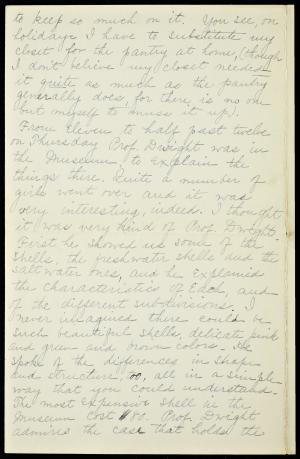 to keep so much on it. You see, on
holidays I have to substitute my
closet for the pantry at home, (though
I don't believe my closet needed
it quite as much as the pantry
generally does, for there is no one
but myself to muss it up).
From eleven to half past twelve
on Thursday Prof. Dwight was in
the Museum to explain the
things there. Quite a number of
girls went over and it was
very interesting, indeed. I thought
it was very kind of Prof. Dwight.
First he showed us some of the
shells, the freshwater shells and the
saltwater ones, and he explained
the characteristics of each, and
of the different subdivisions. I
never imagined there could be
such beautiful shells, delicate pink
and green and brown colors. He
spoke of the differences in shape
and structure, too, all in a simple
way that you could understand.
The most expensive shell in the
Museum cost $80. Prof. Dwight
admires the case that holds the